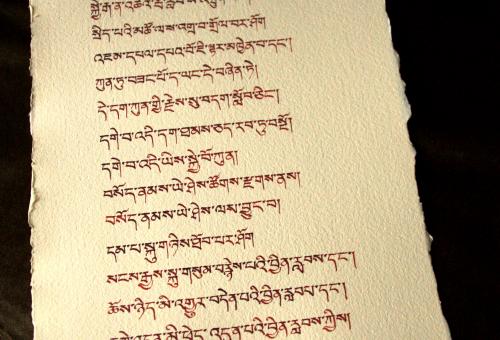 སྐྱེ་རྒ་ན་འཆི
སྲིད་པའི་མཚོ་ལས་འགྲོ་བ་གྲོལ་བར་ཤོག
འཇམ་དཔལ་དཔའ་བོ་ཇི་ལྟར་མཁྱེན་པ་དང་།
ཀུན་ཏུ་བཟང་པོ་དེ་ཡང་དེ་བཞིན་ཏེ།
དེ་དག་ཀུན་གྱི་རྗེས་སུ་བདག་སློབ་ཅིང་།
དགེ་བ་འདི་དག་ཐམས་ཅད་རབ་ཏུ་བསྔོ།
དགེ་བ་འདི་ཡིས་སྐྱེ་བོ་ཀུན།
བསོད་ནམས་ཡེ་ཤེས་ཚོགས་རྫོགས་ནས།
བསོད་ནམས་ཡེ་ཤེས་ལས་བྱུང་བ།
དམ་པ་སྐུ་གཉིས་ཐོབ་པར་ཤོག
སངས་རྒྱས་སྐུ་གསུམ་བརྙེས་པའི་བྱིན་རླབས་དང་།
ཆོས་ཉིད་མི་འགྱུར་བདེན་པའི་བྱིན་རླབས་དང་།
དགེ་འདུན་མི་ཕྱེད་འདུན་པའི་བྱིན་རླབས་ཀྱིས།